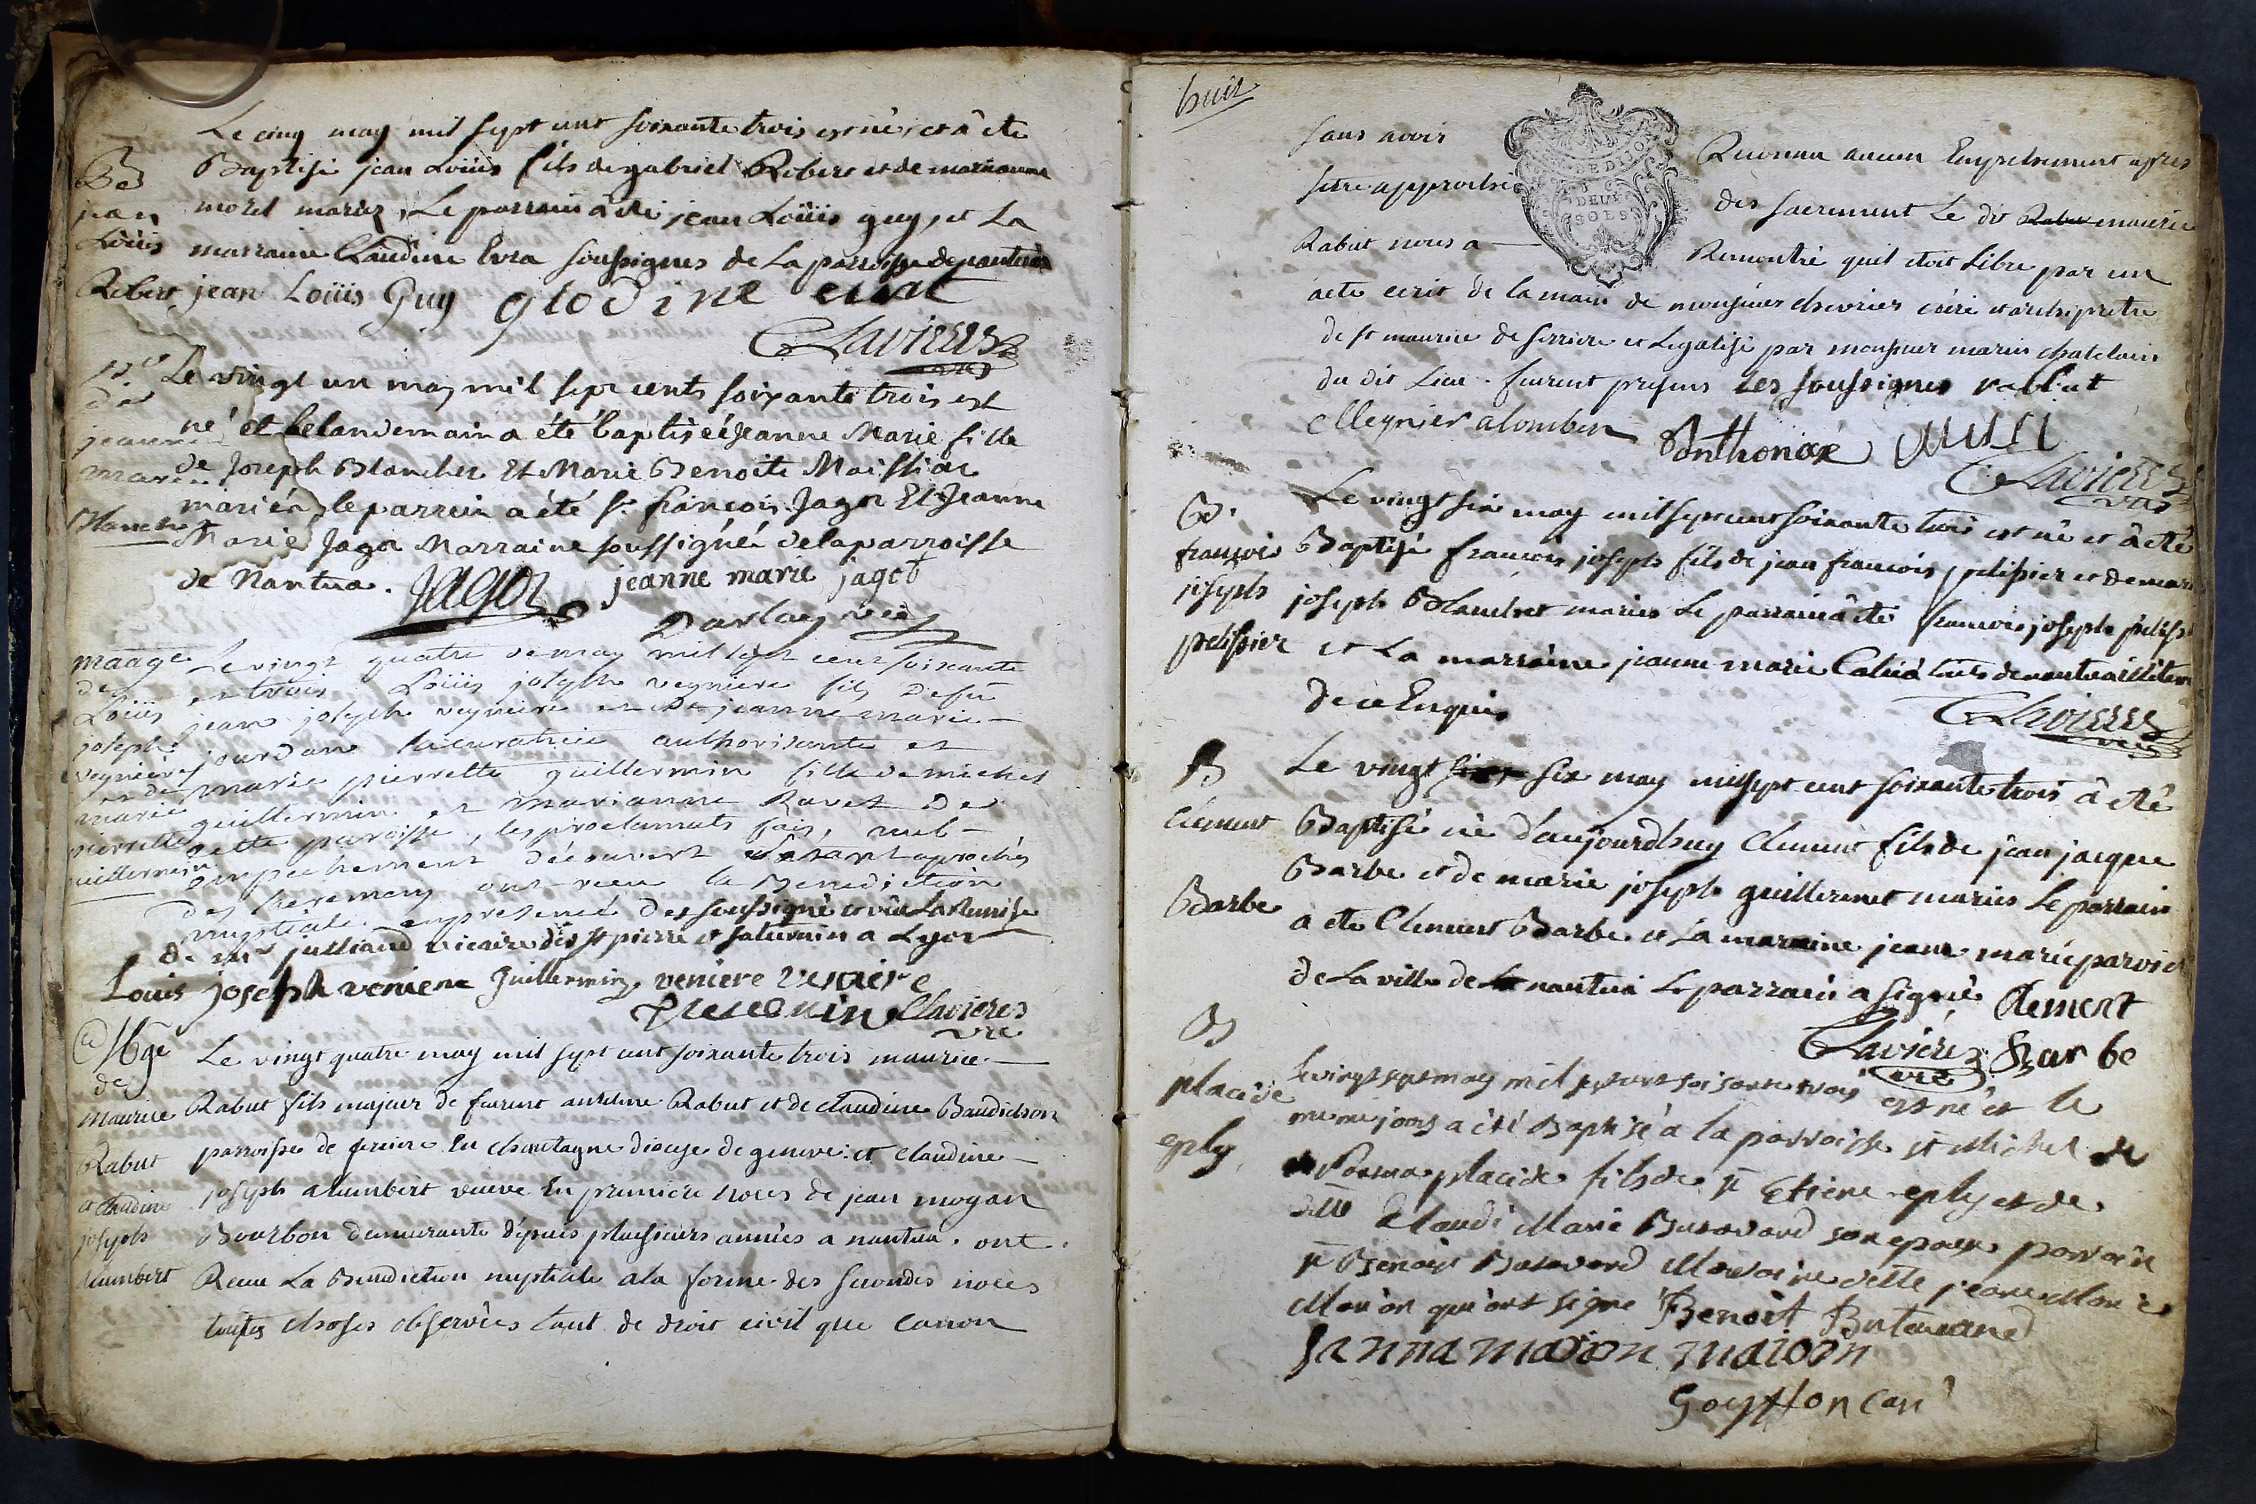 Le cinq may mil sept cent soixante trois est né et â ete
Baptisé jean Loüis fils de gabriel Robert et de marianne
morel mariez, Le parrain a été jean Loüis guy, et La
marraine Claudine Evra soussignes de La parroisse de nantua
jean Loüis Guy glodine
Clavieres
vre
B de
jean
Loüis
Robert
Le vingt un may mil sept cents soixante trois est
né et le landemain a été baptiséé Jeanne Marie fille
de Joseph Blanchet Et Marie Benoite Maissiat
mariéz, le parrein a été sr françois Jagot Et Jeanne
Marie Jagot Marraine soussignéé de la parroisse
de Nantua. Jagot jeanne marie jagot
vre
de
jeanne
marie
Blanchet
Le vingt quatre de may mil sept cent soixante
et trois Loüis joseph veyniere fils defeu
jean joseph veyniere et de jeanne marie
jourdan sa curatrice authorisante et
marie pierrette guillermin fille de michel
guillermin et marianne Ravet de
cette paroisse, les proclamats fais, nul
empechement découvert s'etant aprochés
des sacremens ont recu la Benediction
nuptiale en presence des soussigné et vûe La Remise
de mr julliand vicaire des st pierre et saturnin a Lyon
Louis joseph veniere Guillermin veniere veniere
Clavieres
vre
mariage
de
Loüis
joseph
veyniere
et de
marie
pierrette
guillermin
Le vingt quatre may mil sept cent soixante trois maurice
Rabut fils majeur de furent antelme Rabut et de claudine Baudichon
parroisse de serriere En chautagne diocese de geneve. et claudine
joseph alumbert veuve En premiere noces de jean moyan
Bourbon demeurante dépuis plusieurs années a nantua. ont
Recu La Benediction nuptiale a la forme des secondes noces
toutes choses observées tant de droit civil que canon
Mge
de
maurice
Rabut
et claudine
joseph
alumbert
huit
DEUX
SOLS
sans avoir Reconnu aucun Empechement apres
s'etre approchés des sacrement Le dit Rabut maurice
Rabut nous a Remontré quil etoit Libre par un
acte ecrit de la main de monsieur chevrier curé et archipretre
de st maurice de serriere et Legalisé par monsieur marin chatelain
du dit Lieu. furent presens Les soussignes rabbut
Meynier alomber Ponthoniax
Clavieres
vre
Le vingt six may mil sept cent soixante trois est né et â eté
Baptisé francois joseph fils de jean francois pelissier et de marie
joseph Blanchet mariés Le parrain â ete francois joseph pelissier
et La marraine jeanne marie Caluá touts de nantua illiteres
de ce Enquis
Clavieres
vre
B.
françois
joseph
pelissier
Le vingt six may mil sept cent soixante trois â eté
Baptisé né d'aujourdhuy Clement fils de jean jacque
Barbe et de marie joseph guillermet mariés Le parrain
a ete Clement Barbe et La marraine jeanne marie
de La ville de nantua Le parrain a signé Clement
Clavieres Barbe
vre
B
clement
Barbe
Le vingt sept may mil sept cent soixante trois est né et le
meme jour a été Baptisé a la parroisse st Michel de
Nantua placide fils de sr Etiene eply et de
delle Claudi Marie Butavand son epouse parrain
sr Benoit Butavand Marraine delle jeane Marie
Marion qui ont signe Benoit Butavand
janna marion maiorin
Goyffon can
B
placide
eply